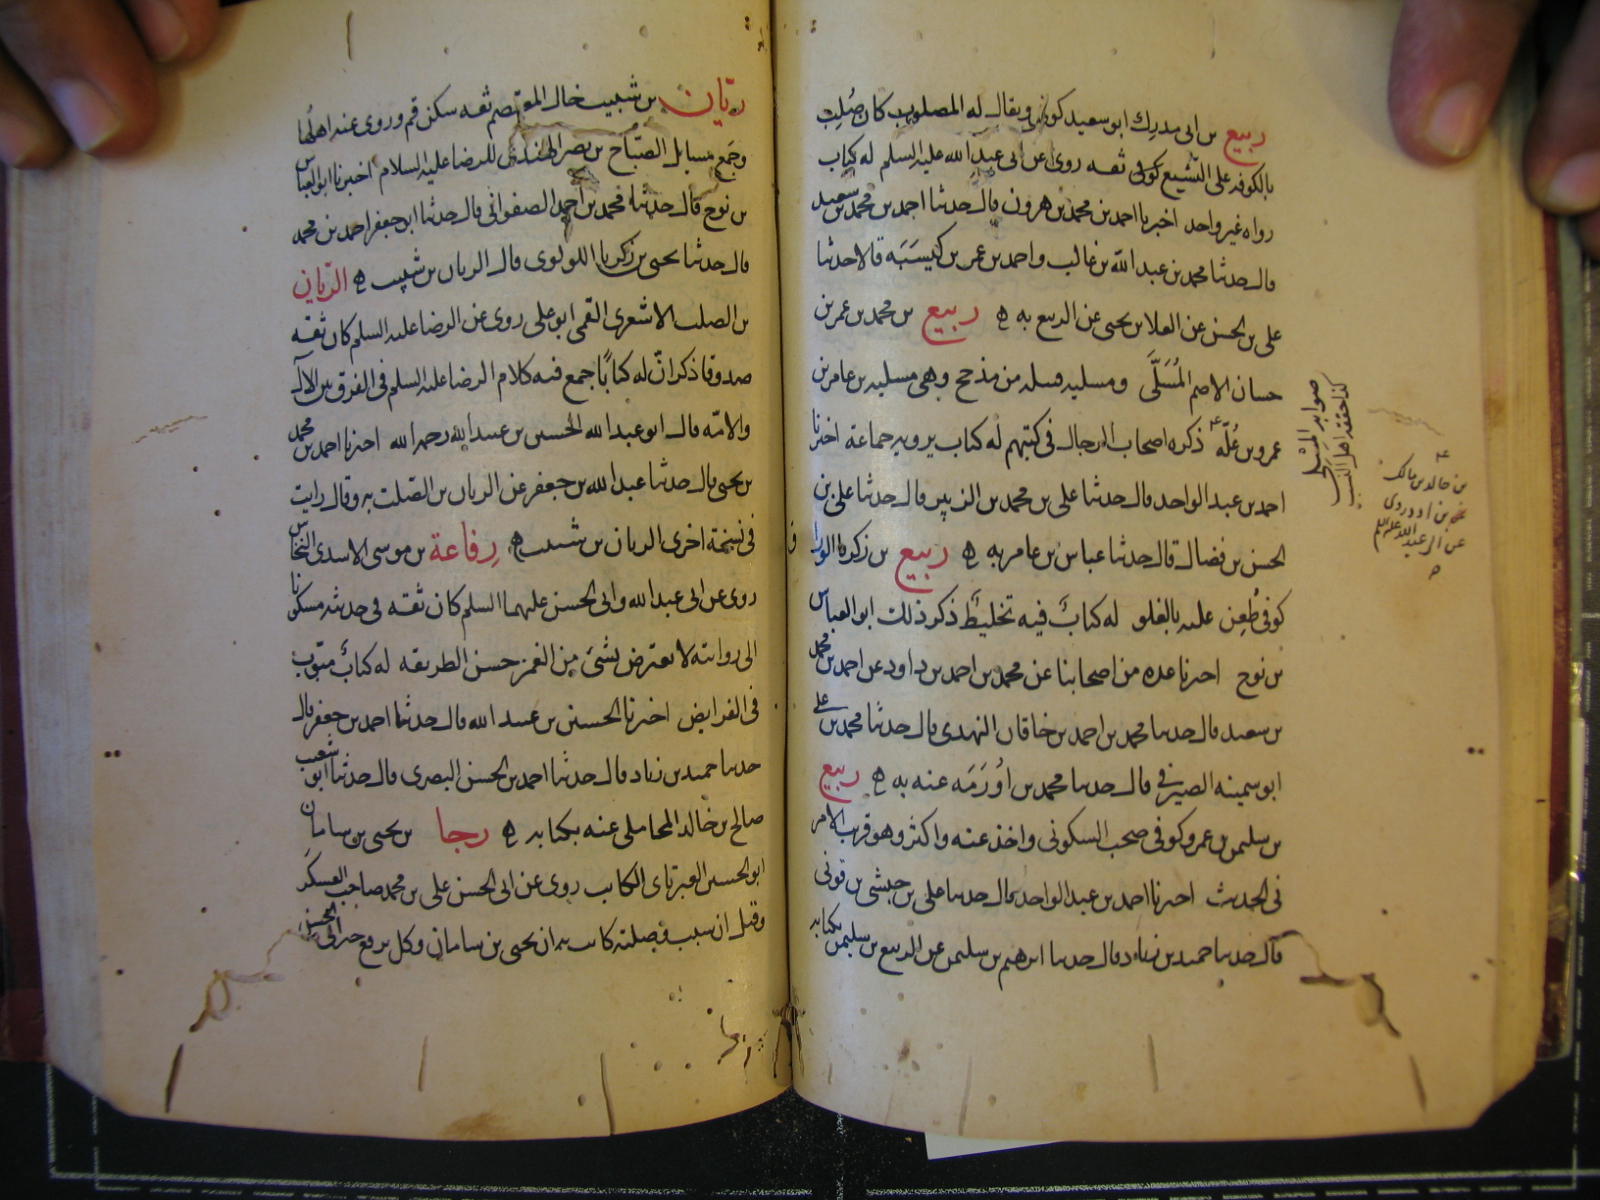 ربيع بن ابى مدرك ابو سعيد كوفى ويقال له المصلوب كان صُلِبَ
بالكوفه على التشيع كوفى ثقه روى عن ابى عبد الله عليه السلم له كتاب
رواه غير واحد اخبرنا احمد بن محمد بن هرون قال حدثنا احمد بن محمد بن سعيد
قال حدثنا محمد بن عبد الله بن غالب واحمد بن عمر بن كَيسَبَه قالا حدثنا
على بن الحسن عن العلا بن يحيى عن الربيع به ه ربيع بن محمد بن عمر بن
حسان الاصم المُسَلَّى ومسليه قبيله من مذحج وهى مسليه بن عامر بن
عمرو بن عُلَّه ذكره اصحاب الرجال فى كتبهم له كتاب يرويه جماعة اخبرنا
احمد بن عبد الواحد قال حدثنا على بن محمد بن الزبير قال حدثنا على بن
الحسن بن فضال قال حدثنا عباس بن عامر به ه ربيع بن زكريا الورا
ق
كوفى طُعِن عليه بالغلو له كتابٌ فيه تخليطٌ ذكر ذلك ابو العباس
بن نوح اخبرنا عده من اصحابنا عن محمد بن احمد بن داود عن احمد بن محمد
بن سعيد قال حدثنا محمد بن احمد بن خاقان النهدى قال حدثنا محمد بن على
ابو سمينه الصيرفى قال حدثنا محمد بن اُورَمَه عنه به ه ربيع
بن سليمن بن عمرو كوفى صحب السكونى واخذ عنه واكثر وهو قريب الامر
فى الحديث اخبرنا احمد بن عبد الواحد قال حدثنا على بن حبشى بن قونى
قال حدثنا حميد بن زياد قال حدثنا ابرهيم بن سليمن عن الربيع بن سليمن بكتابه
صوابه المُسْلِى
كذا حققه اهل النسب
بن خالد بن مالك
بن ادد روى
عن ابى عبد الله عليه السلم
ريّان بن شبيب خال المعتصم ثقه سكن قم وروى عنه اهلُها
وجَمع مسايل الصبّاح بن نصر الهندى للرضا عليه السلام اخبرنا ابو العباس
بن نوح قال حدثنا محمد بن احمد الصفوانى قال حدثنا ابو جعفر احمد بن محمد
قال حدثنا يحيى بن زكريا اللولوى قال الريان بن شبيب ه الريّان
بن الصلت الاشعرى القمى ابو على روى عن الرضا عليه السلم كان ثقه
صدوقا ذكر انّ له كتابًا جمع فيه كلام الرضا عليه السلم فى الفرق بين الآل
والامّه قال ابو عبد الله الحسين بن عبيد الله رحمه الله اخبرنا احمد بن محمد
بن يحيى قال حدثنا عبد الله بن جعفر عن الريان بن الصلت به وقال رايت
فى نسخة اخرى الريان بن شبيب ه رِفاعة بن موسى الاسدى النخاس
روى عن ابى عبد الله وابى الحسن عليهما السلم كان ثقه فى حديثه مسكونا
الى روايته لا يعترض بشئ من الغمز حسن الطريقه له كتابٌ مبوّب
فى الفرايض اخبرنا الحسين بن عبيد الله قال حدثنا احمد بن جعفر قال
حدثنا حميد بن زياد قال حدثنا احمد بن الحسن البصرى قال حدثنا ابو شعيب
صالح بن خالد المحاملى عنه بكتابه ه رجا بن يحيى بن سامان
ابو الحسين العبرتاى الكاتب روى عن ابى الحسن على بن محمد صاحب العسكر
وقيل ان سبب وصلته كانت به ان يحيى بن سامان وكل برفع خبر ابى الحسن